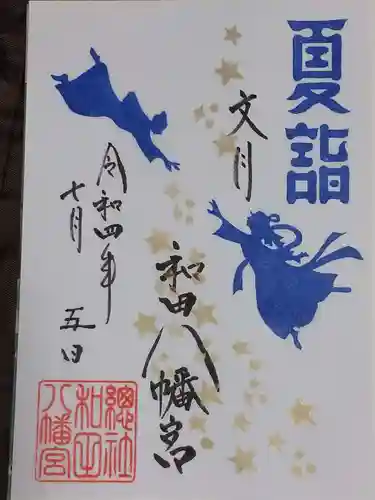 夏詣
文月
和田八幡宮
令和四年
七月五日
總社
和田
八幡宮